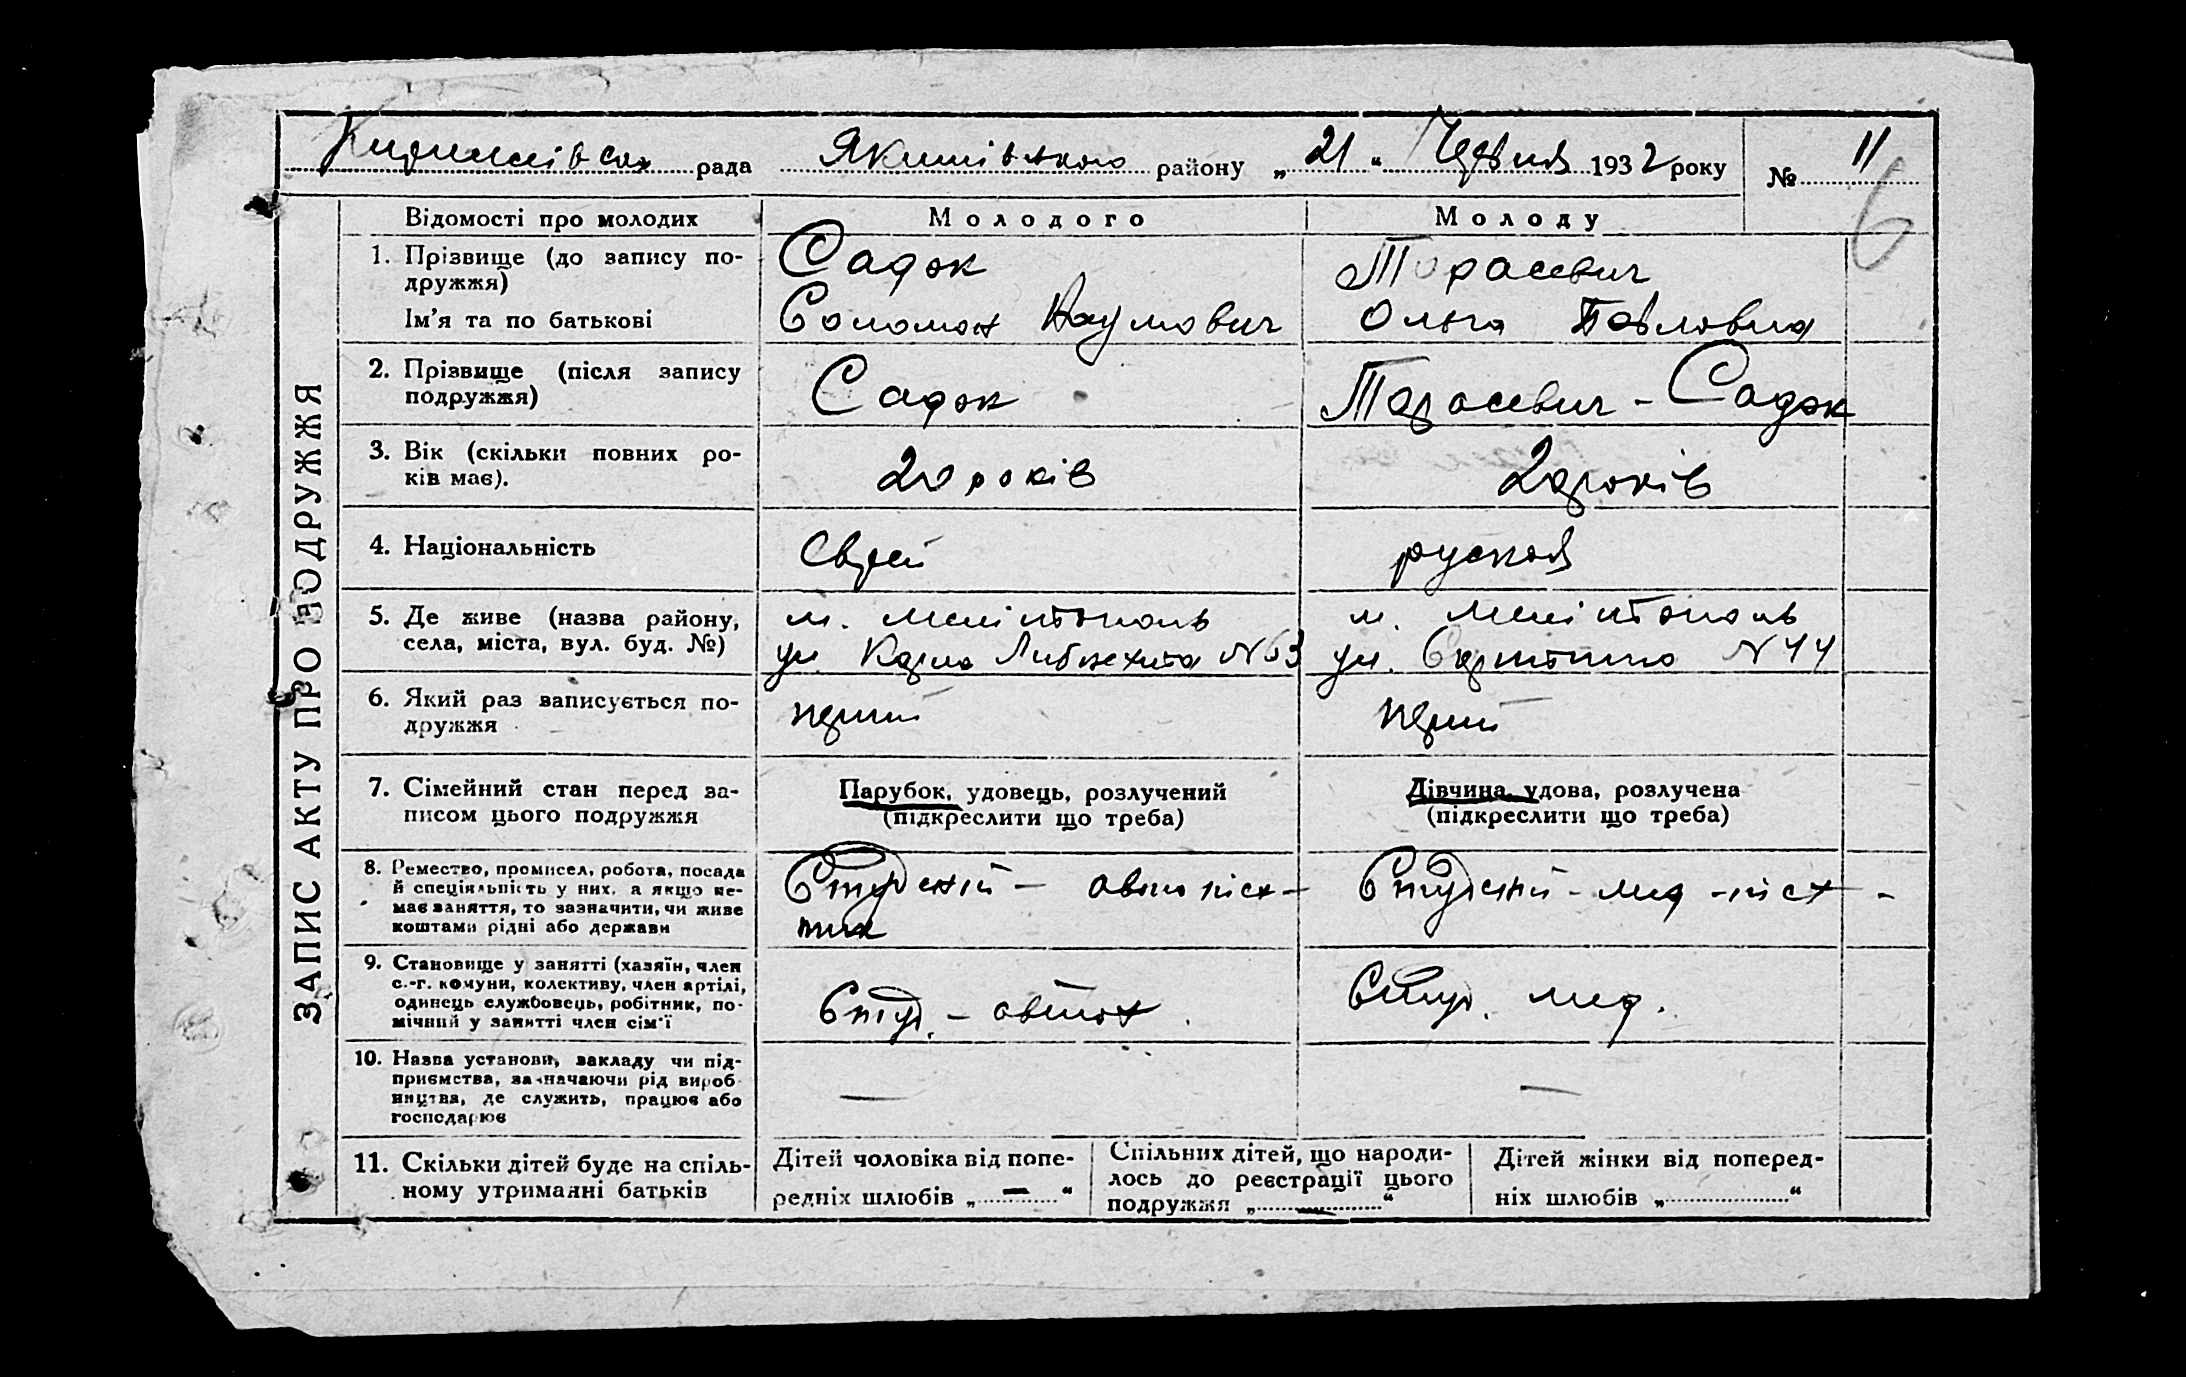 рада Якимівського району „21“ Червня 1932 року № 11
6
ЗАПИС АКТУ ПРО ПОДРУЖЖЯ
Відомості про молодих Молодого Молоду
1. Прізвище (до запису по-
дружжя)
Садок Тарасевич
Ім'я та по батькові Соломон Наумович Ольга Павловна
2. Прізвище (після запису
подружжя)
Садок Тарасевич - Садок
3. Вік (скільки повних ро-
ків має).
20 років 20 років
4. Національність Єврей руская
5. Де живе (назва району,
села, міста, вул. буд. №)
м. Мелітополь м. Мелітополь
ул. Карла Либкнехта N 63 ул. N 44
6. Який раз записується по-
дружжя
перший перший
7. Сімейний стан перед за-
писом цього подружжя
Парубок, удовець, розлучений
(підкреслити що треба)
Дівчина, удова, розлучена
(підкреслити що треба)
8. Ремество, промисел, робота, посада
й спеціяльність у них, а якщо не-
має заняття, то зазначити, чи живе
коштами рідні або держави
Студент -
Студент - мед -
9. Становище у занятті (хазяїн, член
с.-г. комуни, колективу, член артілі,
одинець службовець, робітник, по-
мічний у занятті член сім'ї
Студ. -
Студ. мед.
10. Назва установи, закладу чи під-
приємства, зазначаючи рід вироб-
ництва, де служить, працює або
господарює
— —
11. Скільки дітей буде на спіль-
ному утриманні батьків
Дітей чоловіка від попе-
редніх шлюбів „ — “
Спільних дітей, що народи-
лось до реєстрації цього
подружжя „ — “
Дітей жінки від поперед-
ніх шлюбів „ “